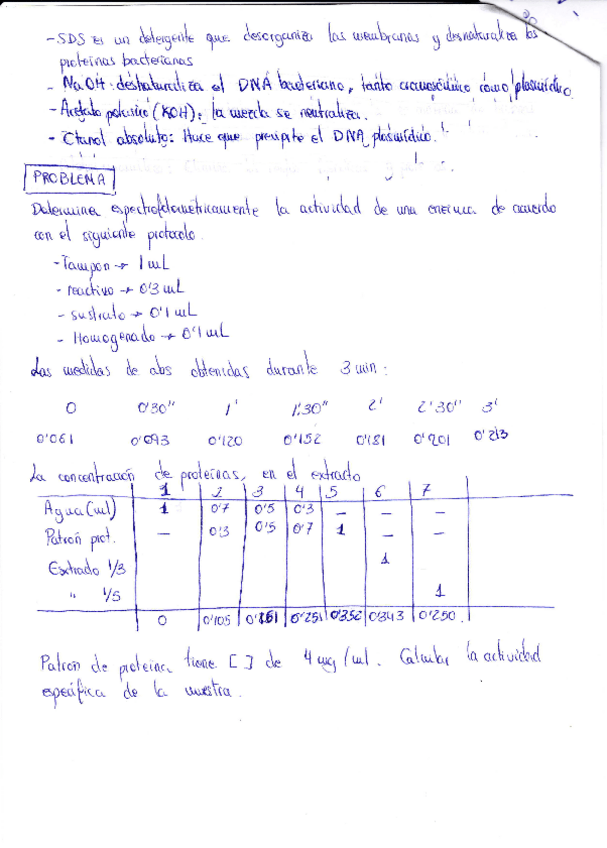 - SDS es un detergente que desorganiza las membranas y desnaturaliza las
proteínas bacterianas
- NaOH: deshaturaliza el DNA bacteriano, tanto cromosómico cómo plasmídico.
- Acetato potásico (KOH): la mezcla se neutraliza.
- Etanol absoluto: Hace que precipite el DNA plasmídico.
PROBLEMA
Determinar espectrofotométricamente la actividad de una enzima de acuerdo
con el siguiente protocolo.
- Tampon → 1 mL
- reactivo → 0'3 mL
- sustrato → 0'1 mL
- Homogenado → 0'1 mL
Las medidas de abs obtenidas durante 3 min:
0 0'30'' 1' 1'.30'' 2' 2'30'' 3'
0'061 0'093 0'120 0'152 0'181 0'201 0'213
La concentración de proteínas, en el extracto
1 2 3 4 5 6 7
Agua (ml) 1 0'7 0'5 0'3 - - -
Patrón prot. - 0'3 0'5 0'7 1 - -
Extracto 1/3 1
" 1/5 1
0 0'105 0'161 0'251 0'352 0'343 0'250
Patron de proteina tiene [ ] de 4 mg/ml. Calcular la actividad
específica de la muestra.